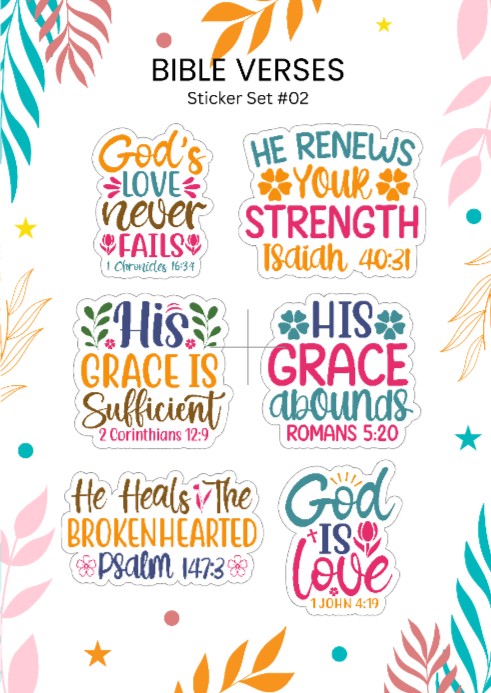 BIBLE VERSES
Sticker Set #02
God's
LOVE
never
FAILS
1 Chronicles 16:34
HE RENEWS
YOUR
STRENGTH
Isaiah 40:31
His
GRACE IS
Sufficient
2 Corinthians 12:9
HIS
GRACE
abounds
ROMANS 5:20
He Heals The
BROKENHEARTED
Psalm 147:3
God
IS
love
1 JOHN 4:19